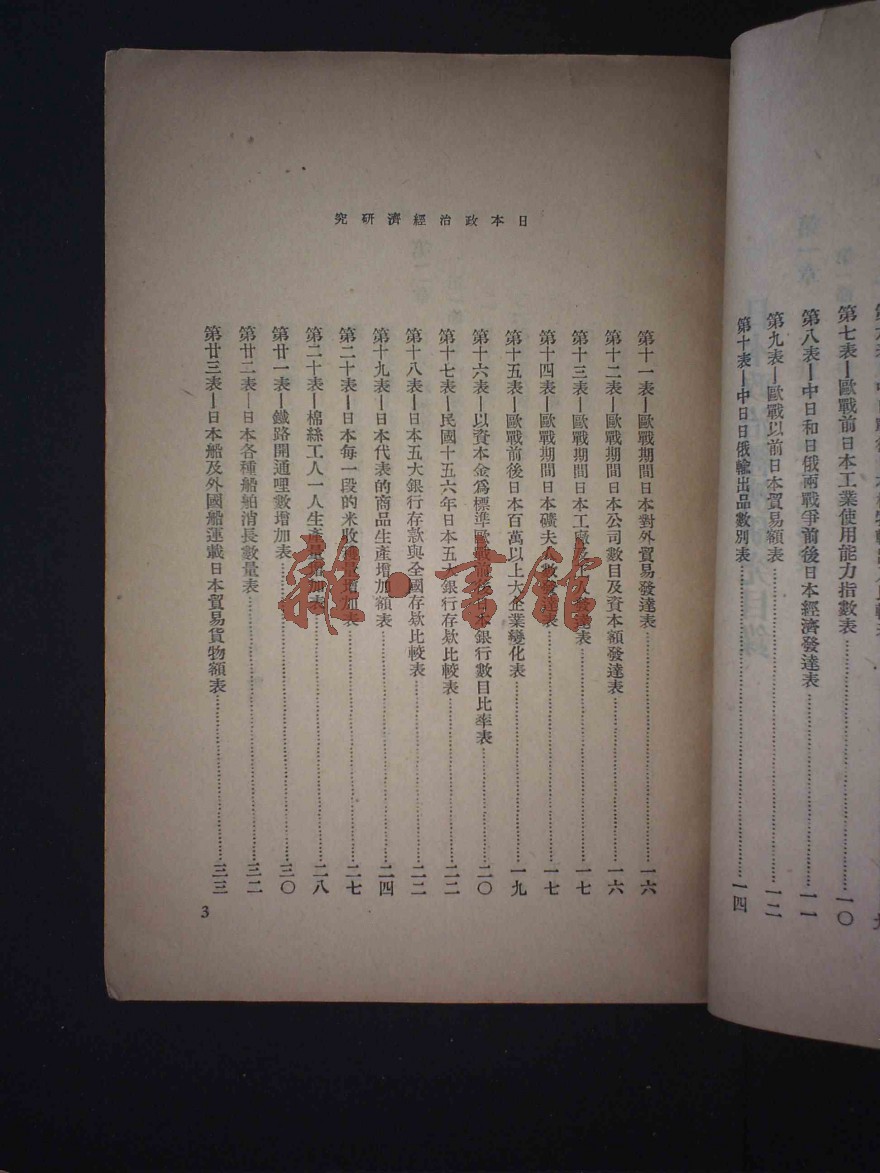 第七表—歐戰前日本工業使用能力指數表…一〇
第八表—中日和日俄兩戰爭前後日本經濟發達表…一一
第九表—歐戰以前日本貿易額表…一二
第十表—中日日俄輸出品數別表…一四
日本政治經濟研究
第十一表—歐戰期間日本對外貿易發達表…一六
第十二表—歐戰期間日本公司數目及資本額發達表…一六
第十三表—歐戰期間日本工廠及工人發達表…一七
第十四表—歐戰期間日本礦夫人數發達表…一七
第十五表—歐戰前後日本百萬以上大企業變化表…一九
第十六表—以資本金爲標準歐戰前後日本銀行數目比率表…二〇
第十七表—民國十五六年日本五大銀行存欵比較表…二二
第十八表—日本五大銀行存款與全國存欵比較表…二二
第十九表—日本代表的商品生產增加額表…二四
第二十表—日本每一段的米收穫量增加表…二七
第二十表—棉絲工人一人生產量增加表…二八
第廿一表—鐵路開通哩數增加表…三〇
第廿二表—日本各種船舶消長數量表…三二
第廿三表—日本船及外國船運載日本貿易貨物額表…三三
3
雜·書館